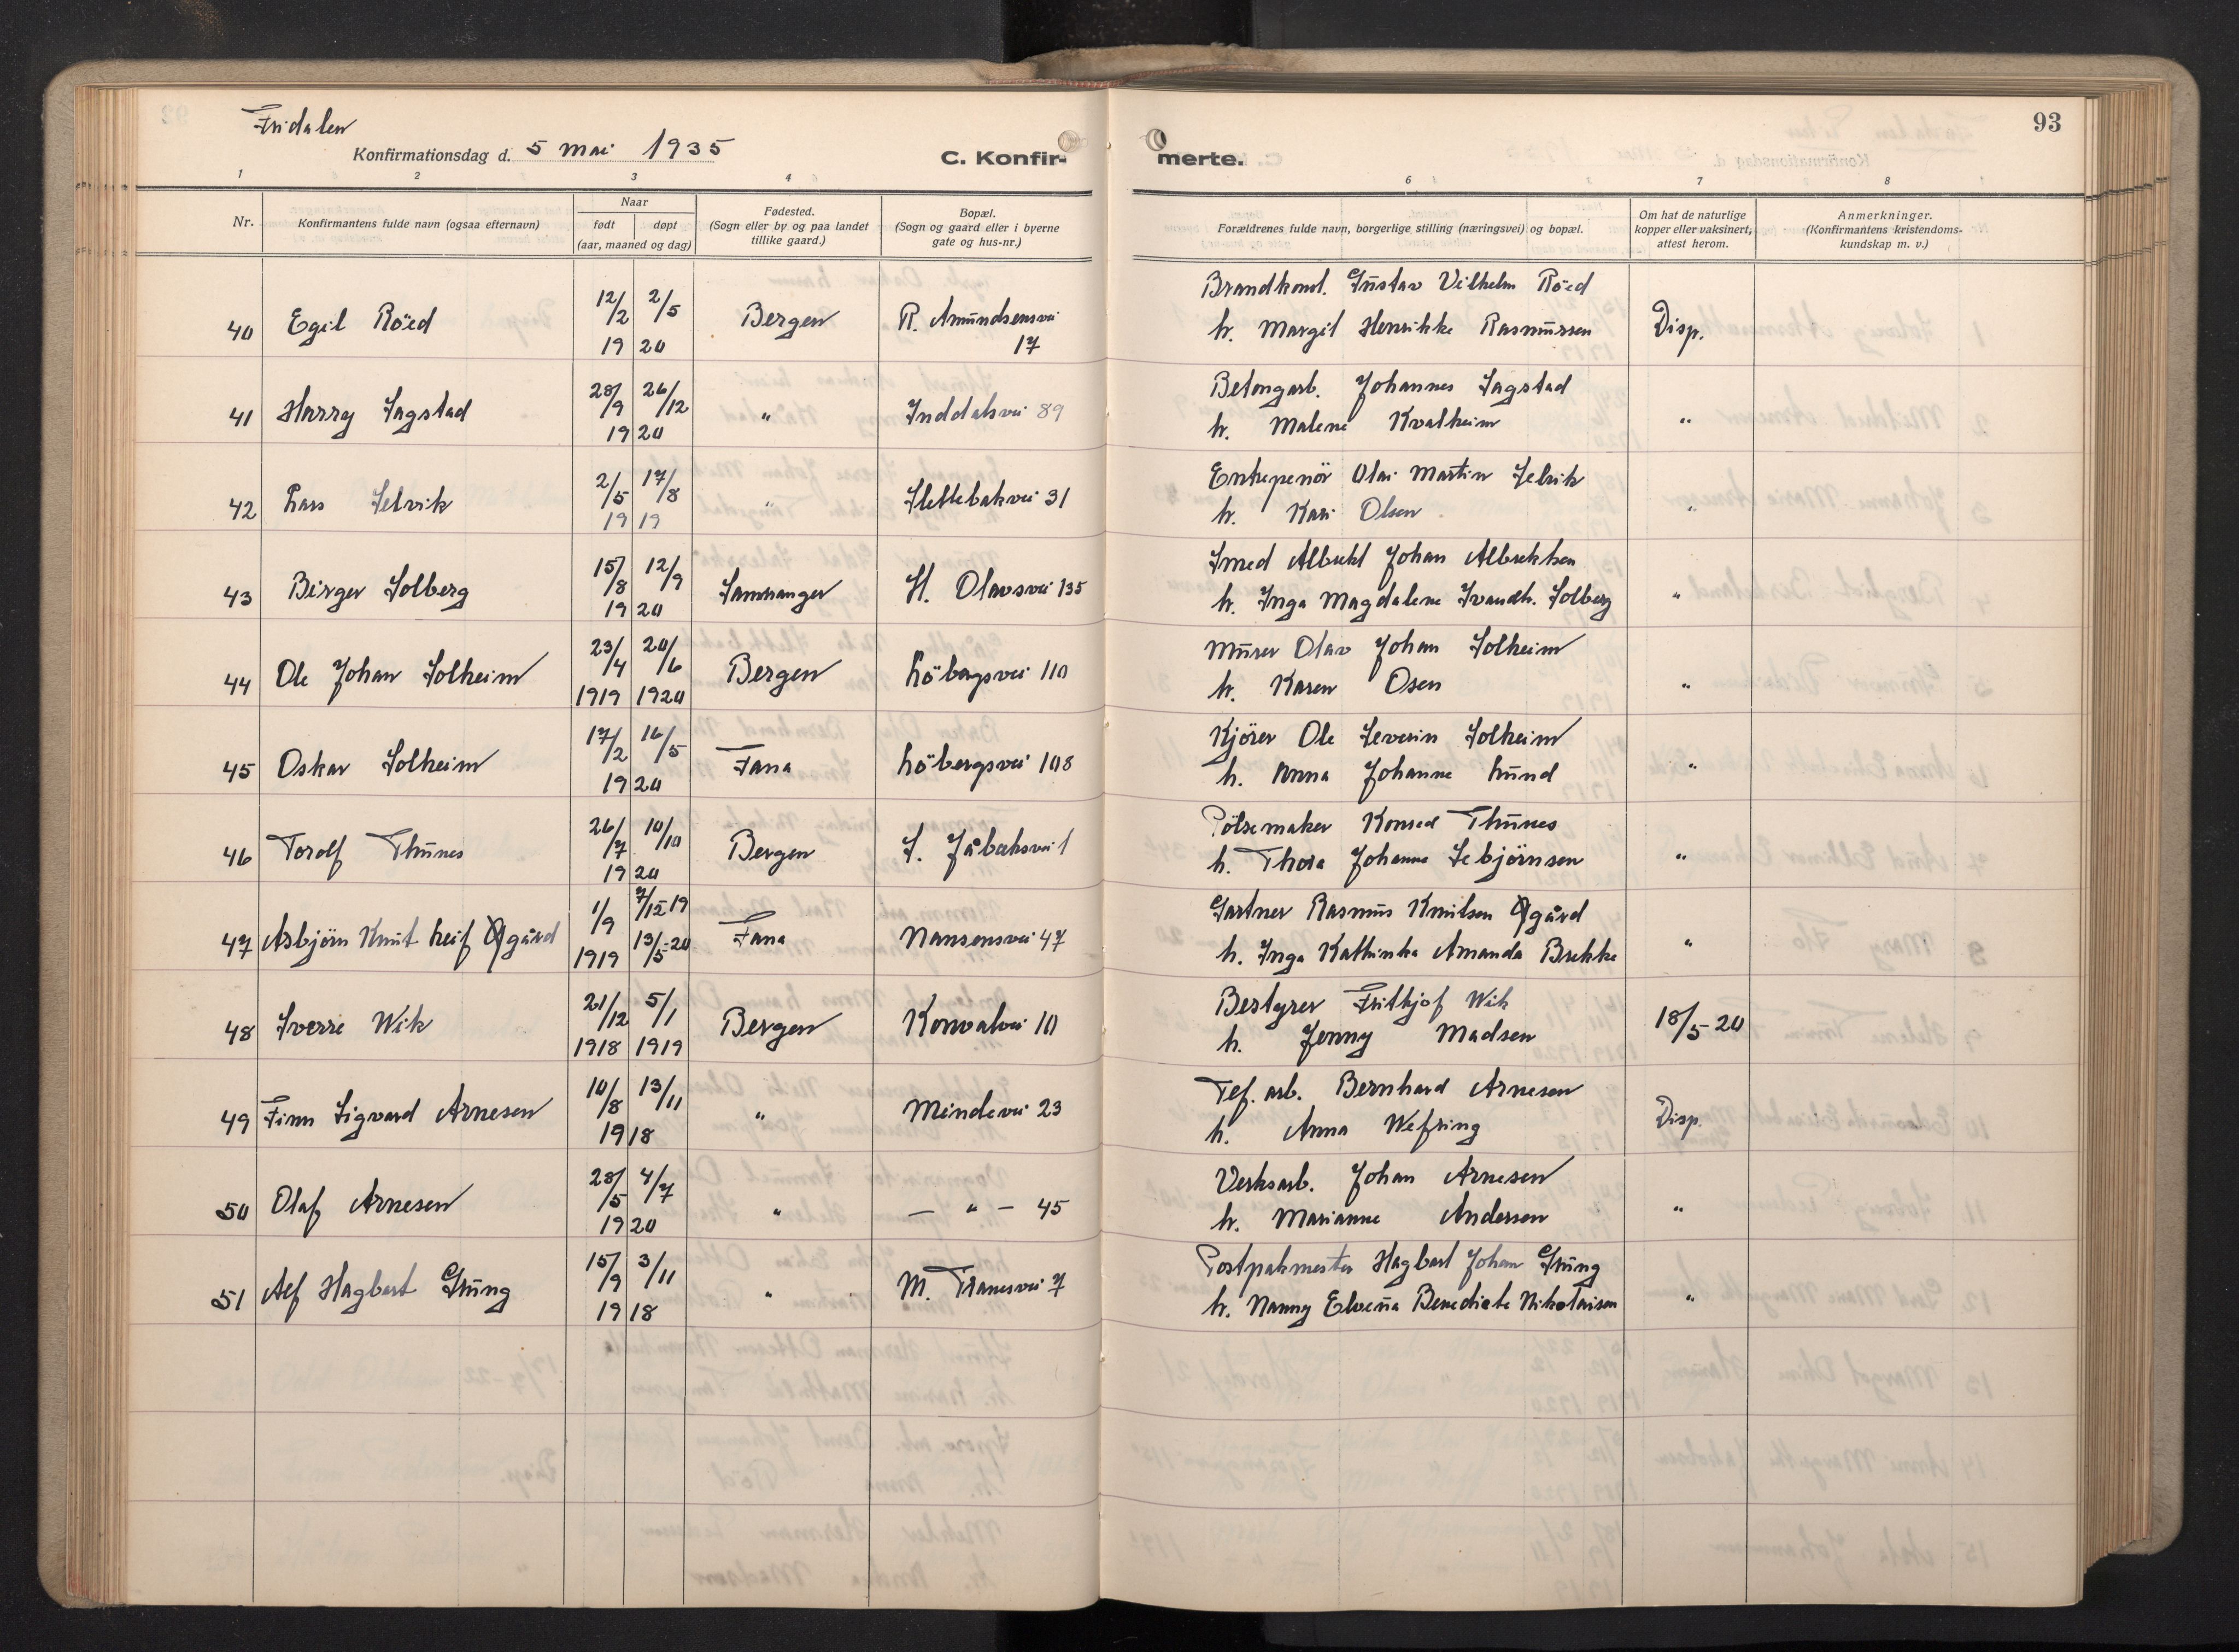 Fridalen
Konfirmationsdag d. 5 mai 1935
C. Konfir-
merte.
93
1 2 3 4 6 7 8
Nr.
Konfirmantens fulde navn (ogsaa efternavn)
Naar
født døpt
(aar, maaned og dag)
Fødested.
(Sogn eller by og paa landet
tillike gaard.)
Bopæl.
(Sogn og gaard eller i byerne
gate og hus-nr.)
Forældrenes fulde navn, borgerlige stilling (næringsvei) og bopæl.
Om hat de naturlige
kopper eller vaksinert,
attest herom.
Anmerkninger.
(Konfirmantens kristendoms-
kundskap m. v.)
Brandkonst. Gustav Vilhelm Röed
40 Egil Röed 12/2 2/5 Bergen R. Amundsensvei h. Margit Henrikke Rasmussen Disp.
19 20 17
28/9 26/12 Betongarb. Johannes Sagstad
41 Harry Sagstad " Inddalsvei 89 h. Malene Kvalheim "
19 20
2/5 17/8 Entrepenör Olai Martin Selvik
42 Lars Selvik " Slettebakvei 31 h. Kari Olsen "
19 19
15/8 12/9 Smed Albrekt Johan Albrektsen
43 Birger Solberg Samnanger H. Olavsvei 135 h. Inga Magdalene Ivandtr. Solberg "
19 20
23/4 20/6 Murer Olav Johan Solheim
44 Ole Johan Solheim Bergen Löbergsvei 110 h. Karen Osen "
1919 1920
17/2 16/5 Kjörer Ole Severin Solheim
45 Oskar Solheim Fana Löbergsvei 108 h. Anna Johanne Lund "
19 20
26/7 10/10 Pölsemaker Konrad Thunes
46 Torolf Thunes Bergen S. Jåbæksvei 1 h. Thora Johanne Sebjörnsen "
19 20
1/9 7/12 19 Gartner Rasmus Knutsen Øgård
47 Asbjörn Knut Leif Øgård 13/5-20 Fana Nansensvei 47 h. Inga Kathinka Amanda Brekke "
1919
21/12 5/1 Bestyrer Frithjof Wik
48 Sverre Wik Bergen Konvalvei 10 h. Jenny Madsen 18/5-20
1918 1919
10/8 13/11 Tef. arb. Bernhard Arnesen
49 Finn Sigvard Arnesen " Mindevei 23 h. Anna Wefring Disp.
19 18
28/5 4/7 Verksarb. Johan Arnesen
50 Olaf Arnesen " — " — 45 h. Marianne Andersen "
19 20
15/9 3/11 Postpakmester Hagbart Johan Grung
51 Alf Hagbart Grung " M. Tranesvei 7 h. Nanny Elvena Benedicte Nikolaisen "
19 18